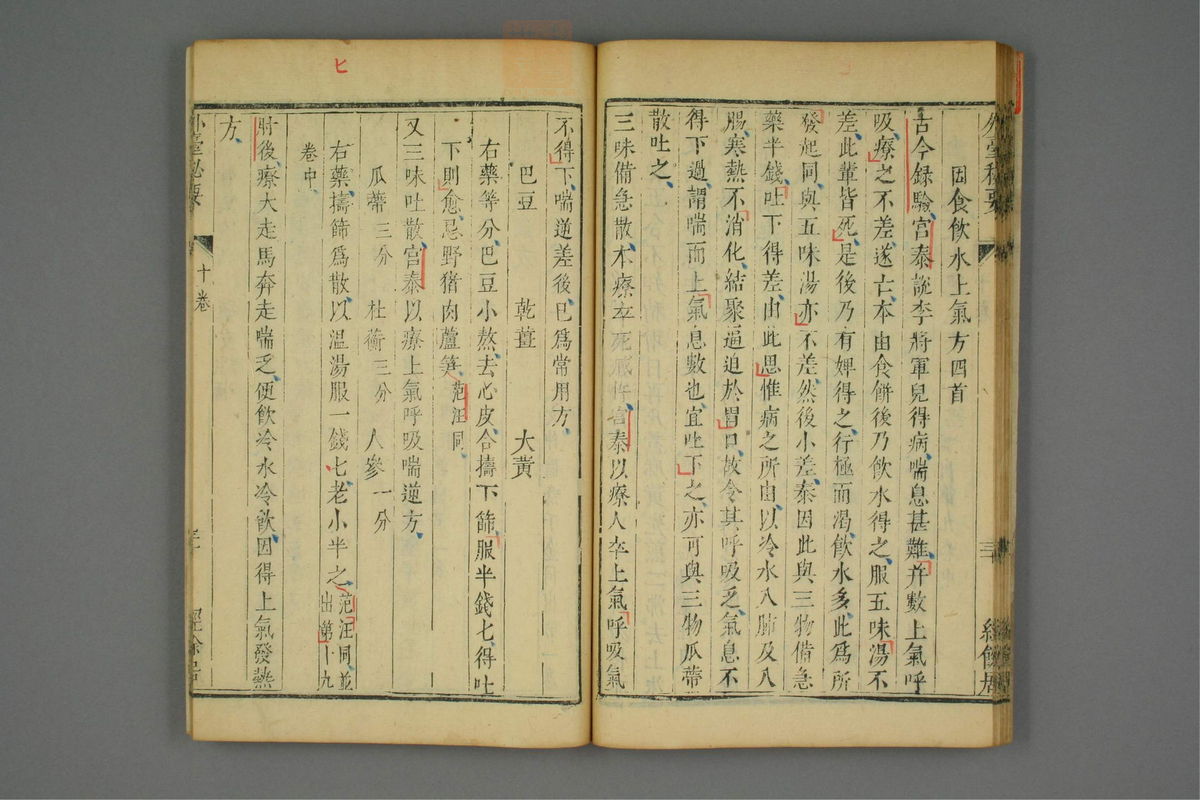 因食飲水上氣方四首
古今録驗宫泰說李將軍兒得病喘息甚難并數上氣呼
吸療之不差遂亡本由食餅後乃飲水得之服五味湯不
差此輩皆死是後乃有婢得之行極而渴飲水多此爲所
發起同與五味湯亦不差然後小差泰因此與三物備急
藥半錢吐下得差由此思惟病之所由以冷水入肺及入
腸寒熱不消化結聚逼迫於胃口故令其呼吸乏氣息不
得下過謂喘而上氣息數也宜吐下之亦可與三物瓜蒂
散吐之
三味備急散本療卒死感忤宫泰以療人卒上氣呼吸氣
不得下喘逆差後已爲常用方
巴豆 乾薑 大黄
右藥等分巴豆小熬去心皮合擣下篩服半錢匕得吐
下則愈忌野猪肉蘆笋范汪同
又三味吐散宫泰以療上氣呼吸喘逆方
瓜蒂三分 杜蘅三分 人參一分
右藥擣篩爲散以温湯服一錢匕老小半之范汪同並出第十九
卷中
肘後療大走馬奔走喘乏便飲冷水冷飲因得上氣發熱
方
外臺秘要
十卷